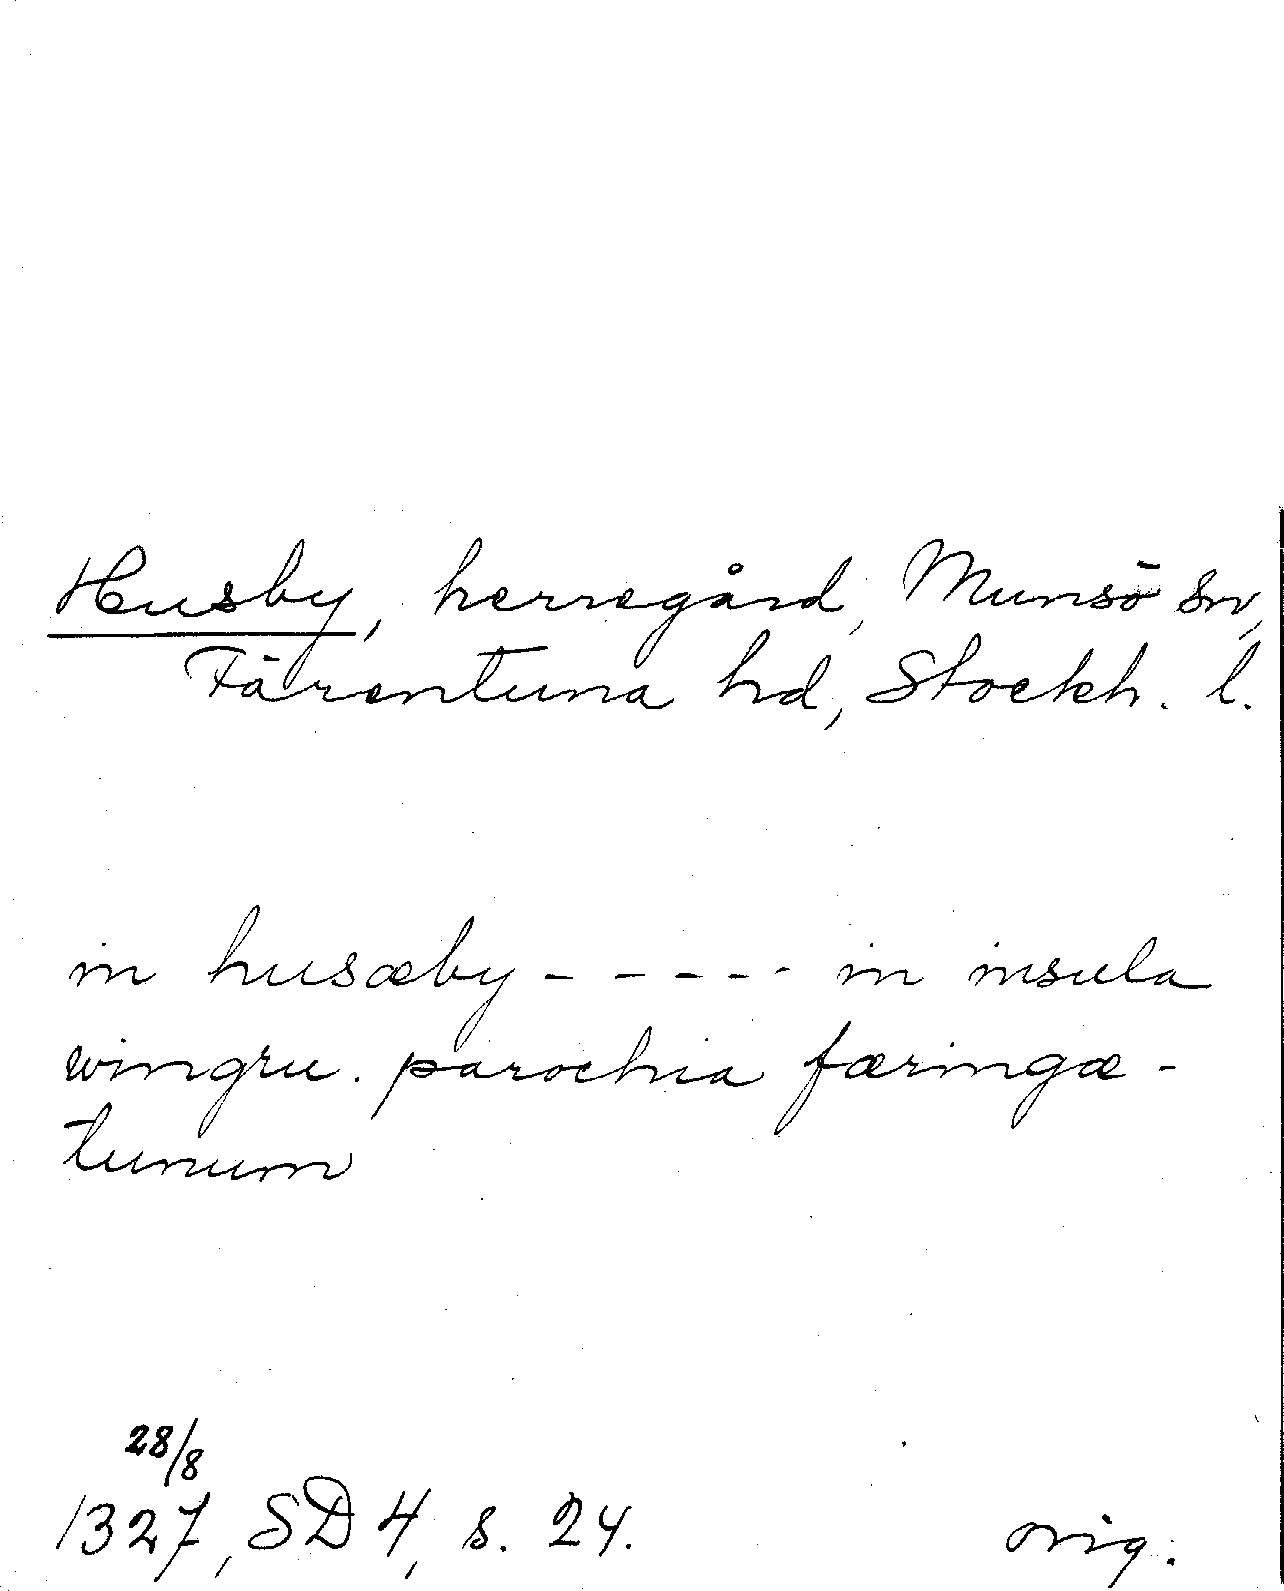 Husby, herregård, Munsö sn,
Färentuna hd, Stockh. l.
in husæby - - - - - in insula
wingru. parochia færingæ-
tunum
28/8
1327, SD 4, s. 24.
orig.